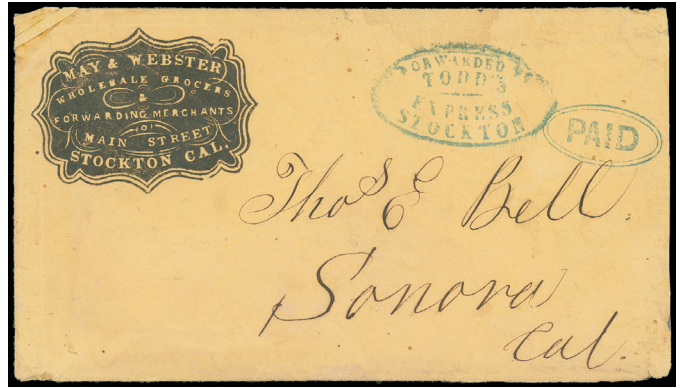 MAY & WEBSTER
WHOLESALE GROCERS
&
FORWARDING MERCHANTS
MAIN STREET
STOCKTON CAL.
FORWARDED
TODD'S
EXPRESS
STOCKTON
PAID
Thos E Bell.
Sonora
Cal.